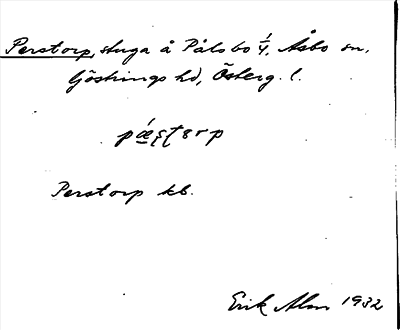 Perstorp, stuga å Pålsbo 1/4, Åsbo sn,
Göstrings hd, Österg. l.
Perstorp kb.
Erik Alm 1932